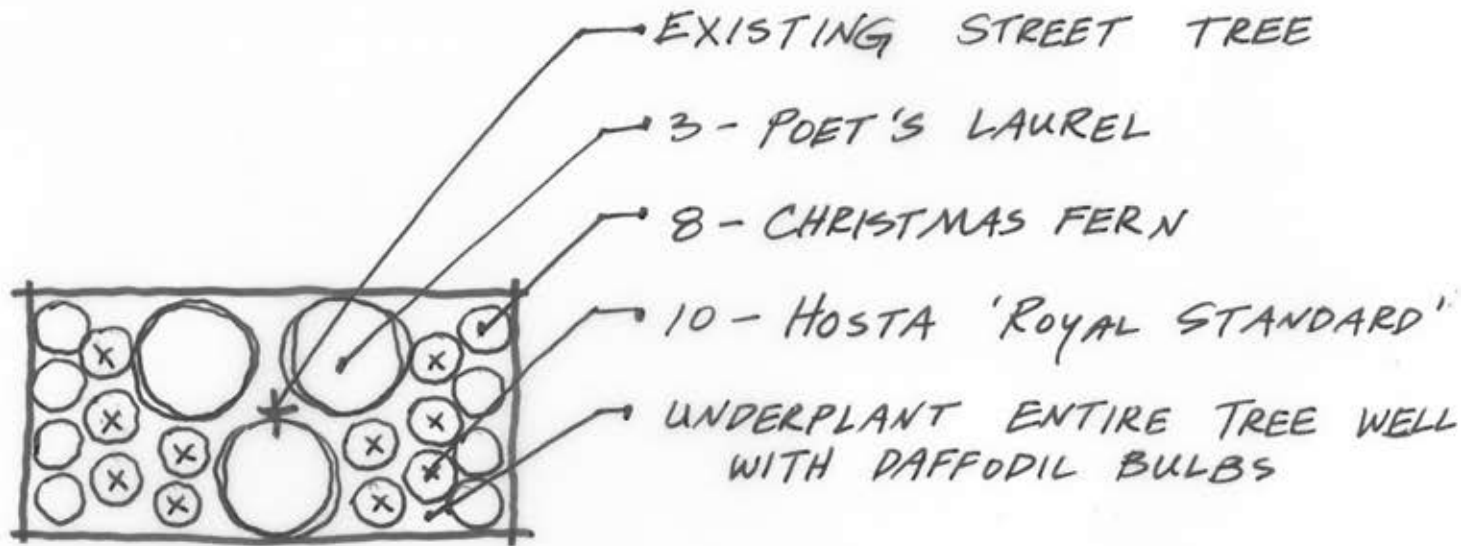 EXISTING STREET TREE
3 - POET'S LAUREL
8 - CHRISTMAS FERN
10 - HOSTA 'ROYAL STANDARD'
UNDERPLANT ENTIRE TREE WELL
WITH DAFFODIL BULBS